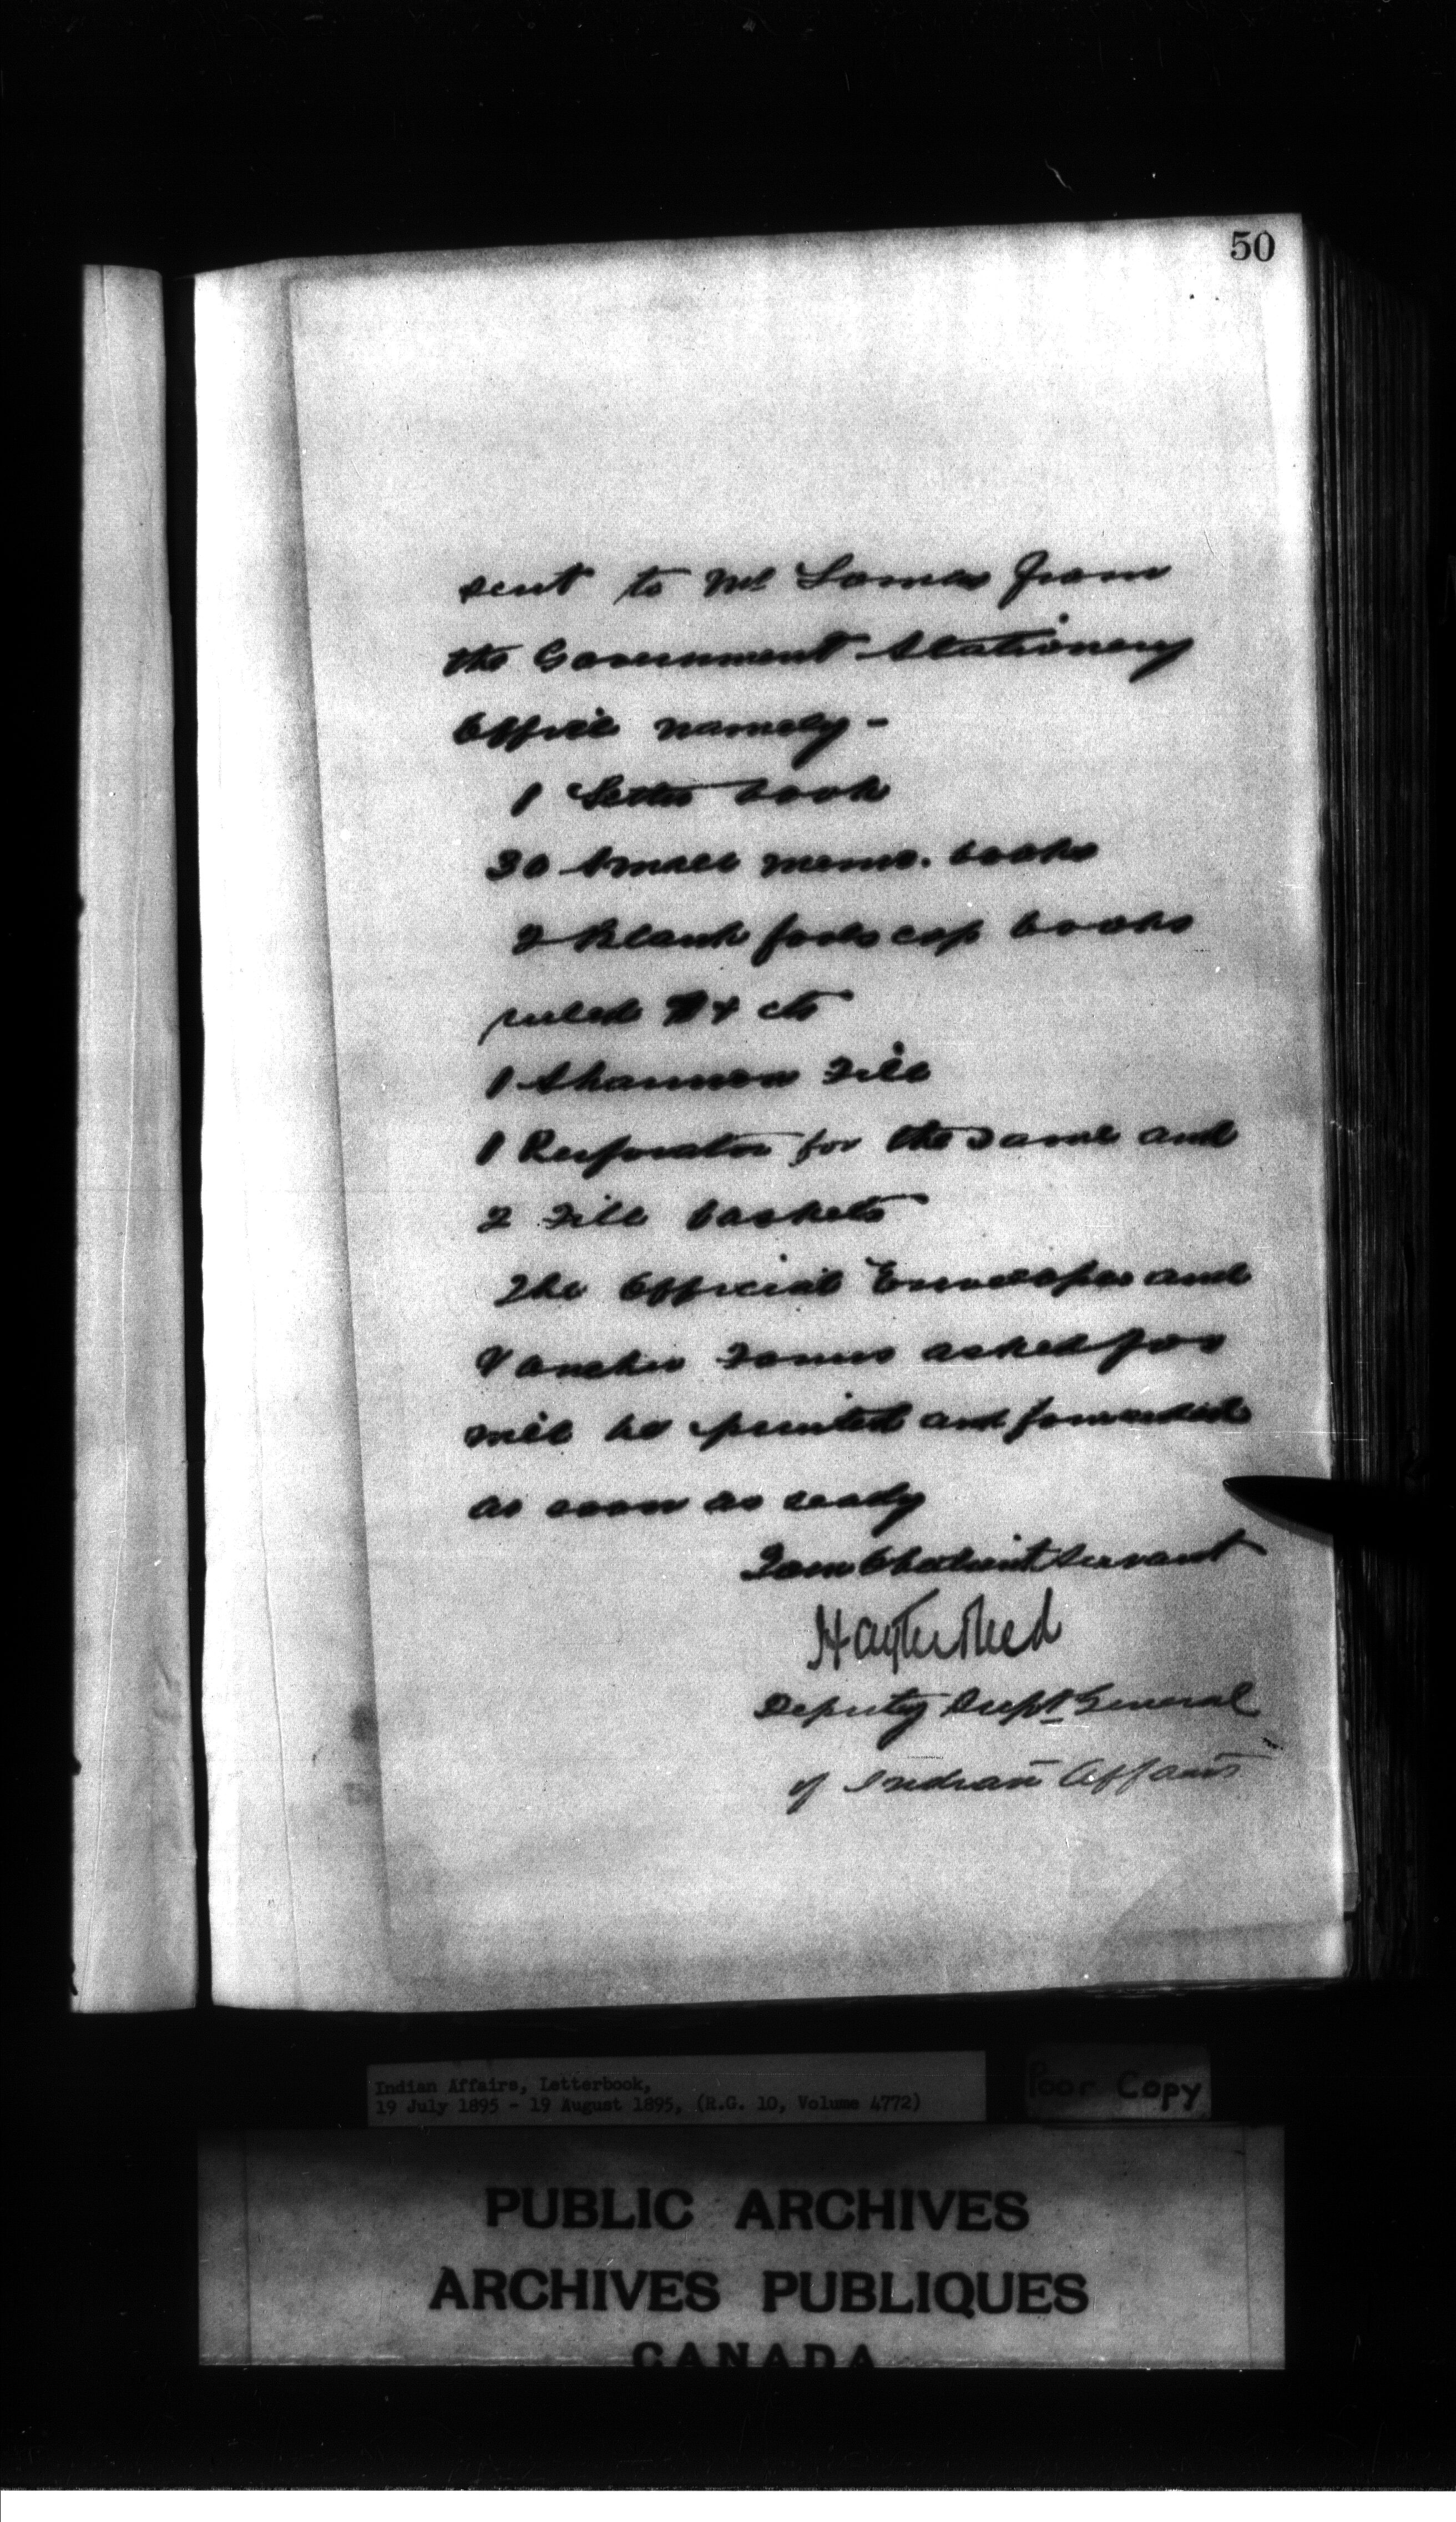 50
sent to Mr Lomas from
the Government Stationery
Office namely -
1 Letter book
30 Small memo. books
2 Blank foolscap books
ruled $ & cts
1 Shannon File
1 Perforator for the same and
2 File baskets
The Official Envelopes and
Voucher Forms asked for
will be printed and forwarded
as soon as ready
I am Obedient Servant
Hayter Reed
Deputy Supt General
of Indian Affairs
Indian Affairs, Letterbook,
19 July 1895 - 19 August 1895, (R.G. 10, Volume 4772)
Poor Copy
PUBLIC ARCHIVES
ARCHIVES PUBLIQUES
CANADA